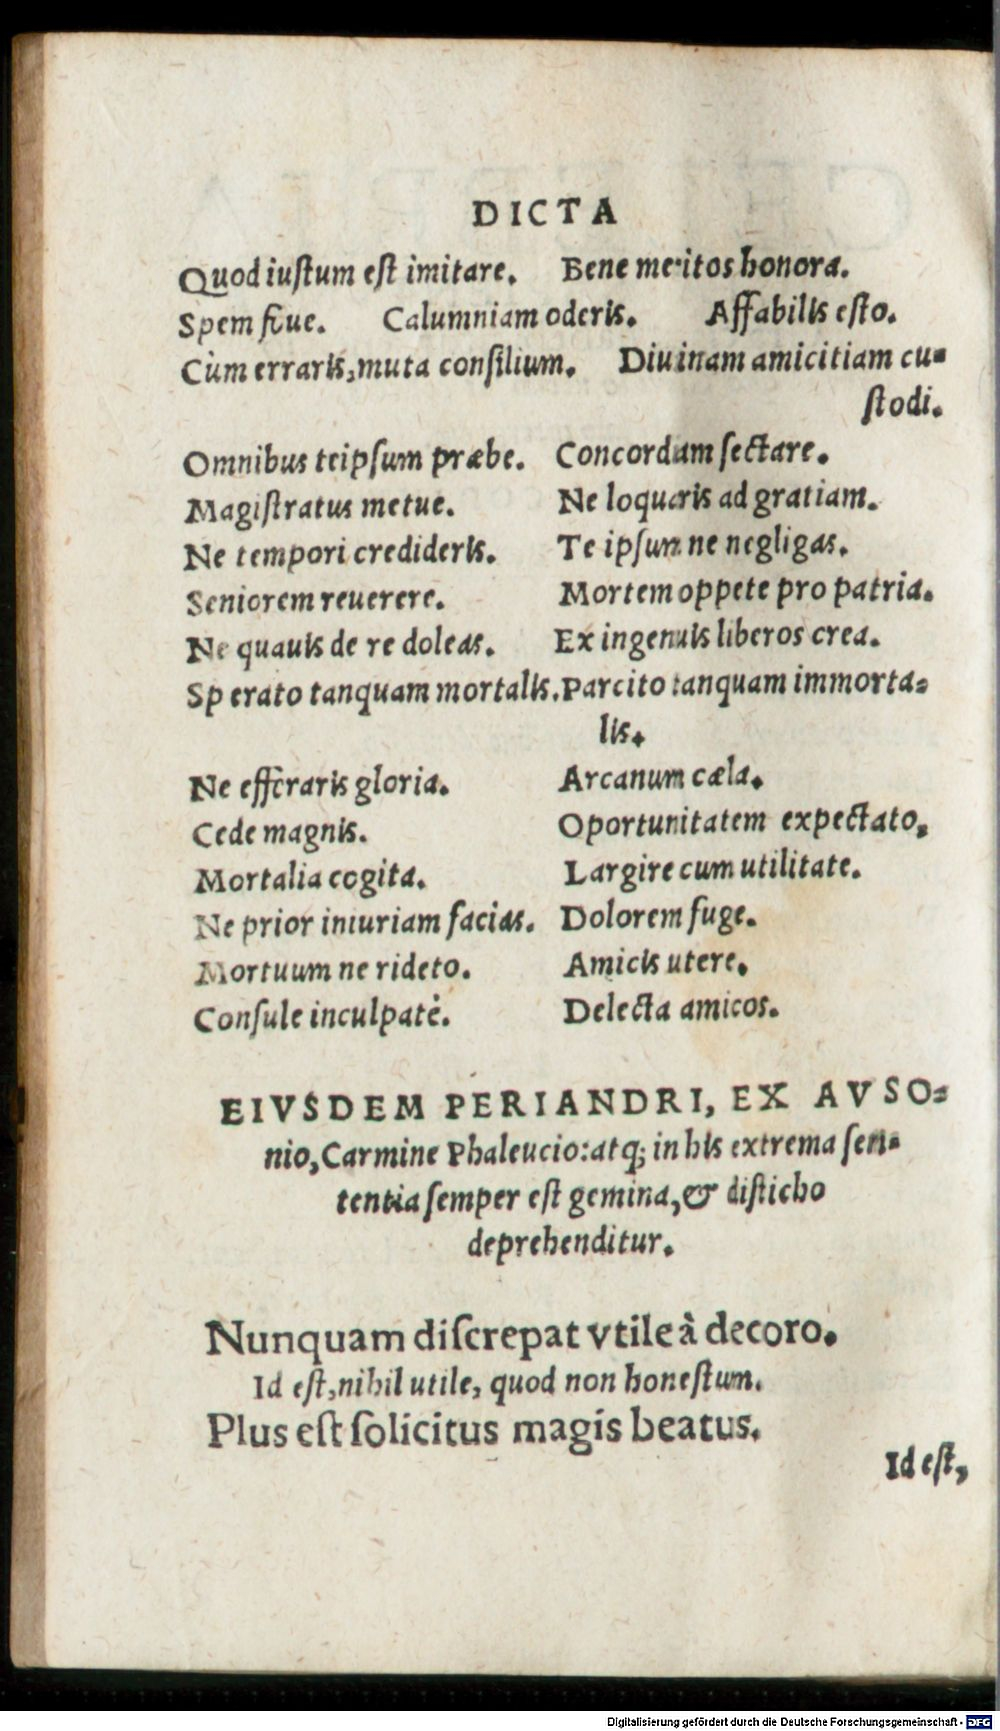 DICTA
Quod iustum est imitare. Bene meritos honora.
Spem fiue. Calumniam oderis. Affabilis esto.
Cùm erraris, muta consilium. Diuinam amicitiam cu-
stodi.
Omnibus teipsum præbe. Concordiam sectare.
Magistratus metue. Ne loquaris ad gratiam.
Ne tempori credideris. Te ipsum ne negligas.
Seniorem reuerere. Mortem oppete pro patria.
Ne quauis de re doleas. Ex ingenuis liberos crea.
Sperato tanquam mortalis. Parcito tanquam immorta-
lis.
Ne efferaris gloria. Arcanum cæla.
Cede magnis. Oportunitatem expectato,
Mortalia cogita. Largire cum utilitate.
Ne prior iniuriam facias. Dolorem fuge.
Mortuum ne rideto. Amicis utere.
Consule inculpatè. Delecta amicos.
EIVSDEM PERIANDRI, EX AVSO-
nio, Carmine Phaleucio: atq; in his extrema sen-
tentia semper est gemina, & disticho
deprehenditur.
Nunquam discrepat vtile à decoro.
Id est, nihil utile, quod non honestum.
Plus est solicitus magis beatus.
Id est,
Digitalisierung gefördert durch die Deutsche Forschungsgemeinschaft - DFG